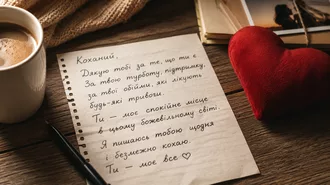 Коханий,
Дякую тобі за те, що ти є.
За твою турботу, підтримку,
за твої обійми, які лікують
будь-які тривоги.
Ти – моє спокійне місце
в цьому божевільному світі.
Я пишаюсь тобою щодня
і безмежно кохаю.
Ти – моє все ♡